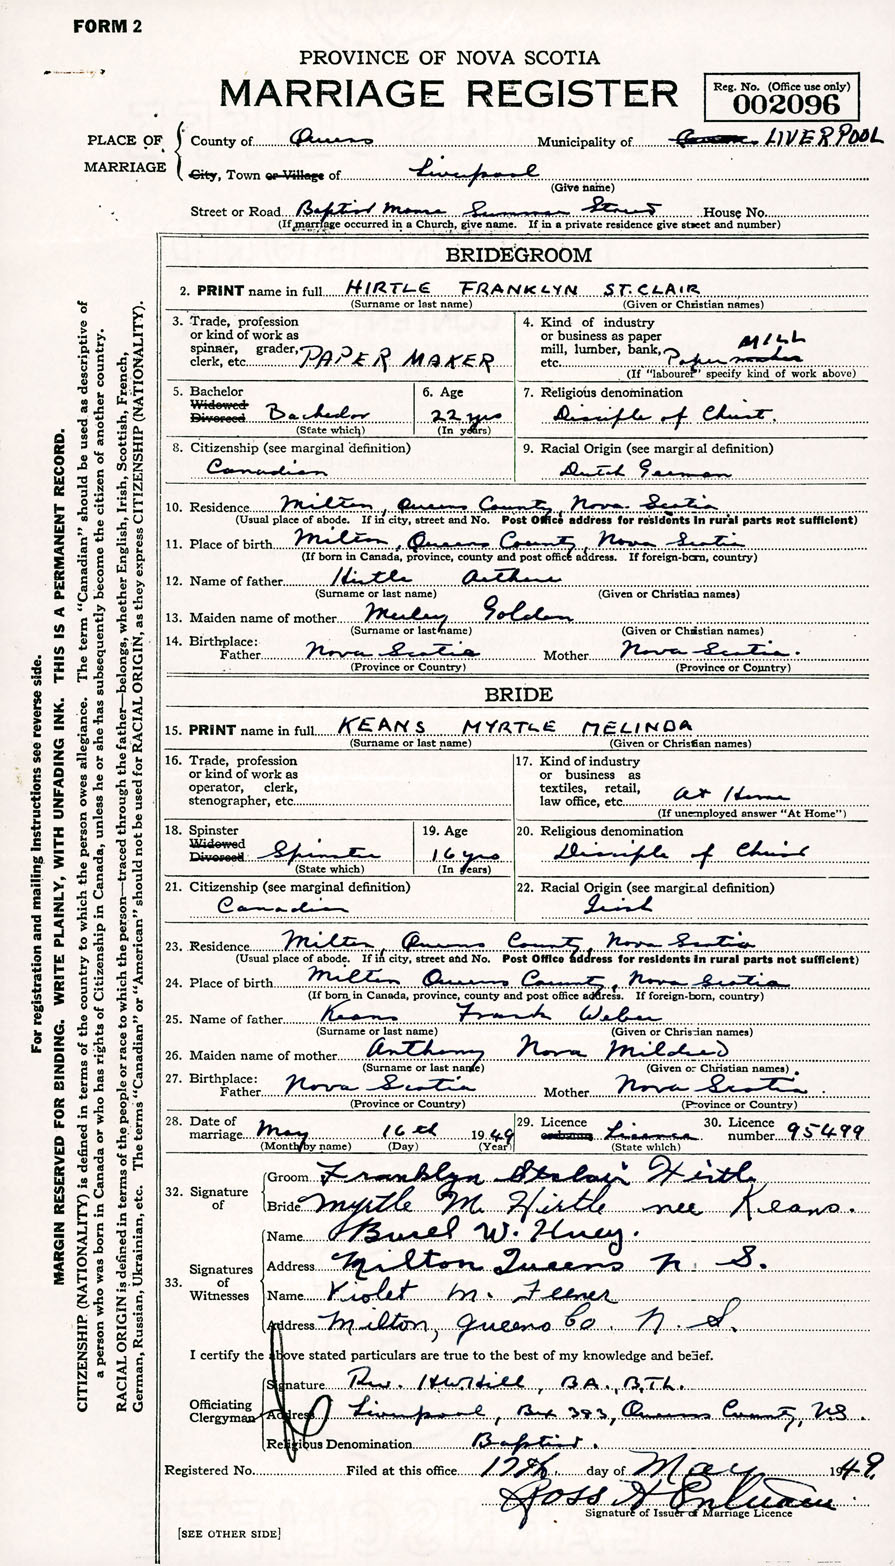 FORM 2
PROVINCE OF NOVA SCOTIA
MARRIAGE REGISTER
Reg. No. (Office use only)
002096
PLACE OF MARRIAGE
County of Queens Municipality of LIVERPOOL
City, Town or Village of Liverpool
(Give name)
Street or Road Baptist Manse Summer Street House No.
(If marriage occurred in a Church, give name. If in a private residence give street and number)
BRIDEGROOM
2. PRINT name in full HIRTLE FRANKLYN ST. CLAIR
(Surname or last name) (Given or Christian names)
3. Trade, profession or kind of work as spinner, grader, clerk, etc. PAPER MAKER
4. Kind of industry or business as paper mill, lumber, bank, etc. Paper MILL
(If "labourer" specify kind of work above)
5. Bachelor Widowed Divorced Bachelor
(State which)
6. Age 22 yrs
(In years)
7. Religious denomination
Disciple of Christ.
8. Citizenship (see marginal definition)
Canadian
9. Racial Origin (see marginal definition)
Dutch German
10. Residence Milton, Queens County, Nova Scotia
(Usual place of abode. If in city, street and No. Post Office address for residents in rural parts not sufficient)
11. Place of birth Milton, Queens County, Nova Scotia
(If born in Canada, province, county and post office address. If foreign-born, country)
12. Name of father Hirtle Arthur
(Surname or last name) (Given or Christian names)
13. Maiden name of mother Golden
(Surname or last name) (Given or Christian names)
14. Birthplace:
Father Nova Scotia Mother Nova Scotia.
(Province or Country) (Province or Country)
BRIDE
15. PRINT name in full KEANS MYRTLE MELINDA
(Surname or last name) (Given or Christian names)
16. Trade, profession or kind of work as operator, clerk, stenographer, etc.
17. Kind of industry or business as textiles, retail, law office, etc. At Home
(If unemployed answer "At Home")
18. Spinster Widowed Divorced Spinster
(State which)
19. Age 16 yrs
(In years)
20. Religious denomination
Disciple of Christ
21. Citizenship (see marginal definition)
Canadian
22. Racial Origin (see marginal definition)
Irish
23. Residence Milton, Queens County, Nova Scotia
(Usual place of abode. If in city, street and No. Post Office address for residents in rural parts not sufficient)
24. Place of birth Milton Queens County, Nova Scotia
(If born in Canada, province, county and post office address. If foreign-born, country)
25. Name of father Keans Frank Weber
(Surname or last name) (Given or Christian names)
26. Maiden name of mother Anthony Nova Mildred
(Surname or last name) (Given or Christian names)
27. Birthplace:
Father Nova Scotia Mother Nova Scotia.
(Province or Country) (Province or Country)
28. Date of marriage May 16th 1949
(Month by name) (Day) (Year)
29. Licence Licence
(State which)
30. Licence number 95499
32. Signature of
Groom Franklyn StClair Hirtle
Bride Myrtle M. Hirtle nee Keans.
33. Signatures of Witnesses
Name W. Huey.
Address Milton Queens N. S.
Name Violet M. Feener
Address Milton, Queens Co. N. S.
I certify the above stated particulars are true to the best of my knowledge and belief.
Officiating Clergyman
Signature Rev. Hill, BA., B.TH.
Address Liverpool, Box 383, Queens County, N.S.
Religious Denomination Baptist.
Registered No. Filed at this office 17th day of May 1949
Ross
Signature of Issuer of Marriage Licence
[SEE OTHER SIDE]
For registration and mailing instructions see reverse side.
MARGIN RESERVED FOR BINDING. WRITE PLAINLY, WITH UNFADING INK. THIS IS A PERMANENT RECORD.
CITIZENSHIP (NATIONALITY) is defined in terms of the country to which the person owes allegiance. The term "Canadian" should be used as descriptive of
a person who was born in Canada or who has rights of Citizenship in Canada, unless he or she has subsequently become the citizen of another country.
RACIAL ORIGIN is defined in terms of the people or race to which the person—traced through the father—belongs, whether English, Irish, Scottish, French,
German, Russian, Ukrainian, etc. The terms "Canadian" or "American" should not be used for RACIAL ORIGIN, as they express CITIZENSHIP (NATIONALITY).